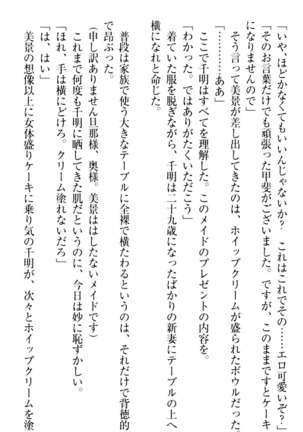 「いや、ほどかなくてもいいんじゃないか? これはこれでその……エロ可愛いぞ?」
「そのお言葉だけでも頑張った甲斐がございました。ですが、このままですとケーキ
になりませんので」
そう言って美景が差し出してきたのは、ホイップクリームが盛られたボウルだった。
「………ああ」
ここで千明はすべてを理解した。このメイドのプレゼントの内容を。
「わかった。ではありがたくいただこう」
着ていた服を脱ぎながら、千明は二十九歳になったばかりの新妻にテーブルの上へ
横になれと命じた。
普段は家族で使う大きなテーブルに全裸で横たわるというのは、それだけで背徳的
で昂ぶった。
(申し訳ありません旦那様、奥様。美景ははしたないメイドです)
これまで何度も千明に晒してきた肌だというのに、今日は妙に恥ずかしい。
「ほれ、手は横にどけろ。クリーム塗れないだろ」
「は、はい」
美景の想像以上に女体盛りケーキに乗り気の千明が、次々とホイップクリームを塗